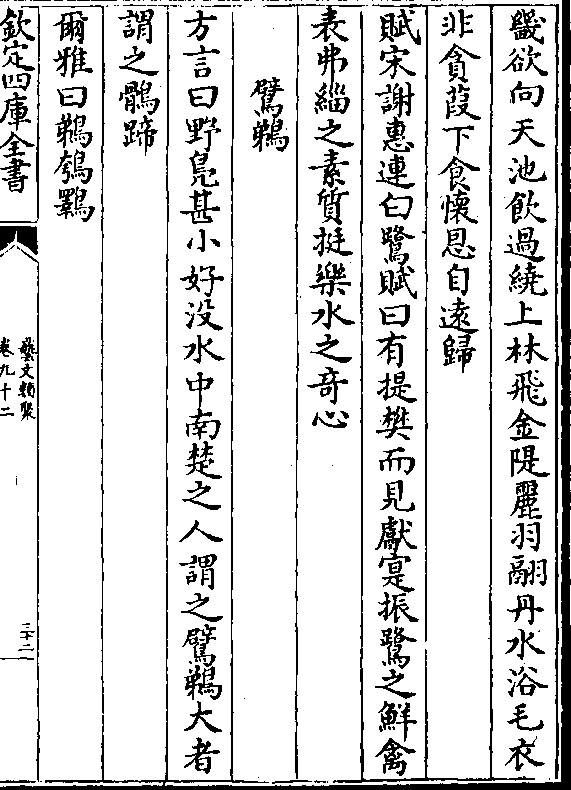 畿欲向天池飲過繞上林飛金隄麗羽翮丹水浴毛衣
非貪葭下食懷恩自遠歸
賦宋謝惠連白鷺賦曰有提樊而見獻寔振鷺之鮮禽
表弗緇之素質挺樂水之奇心
鷿鵜
方言曰野鳧甚小好没水中南楚之人謂之鷿鵜大者
謂之鶻蹄
爾雅曰鵜鴮鸅
欽定四庫全書
藝文類聚
卷九十二
三十二